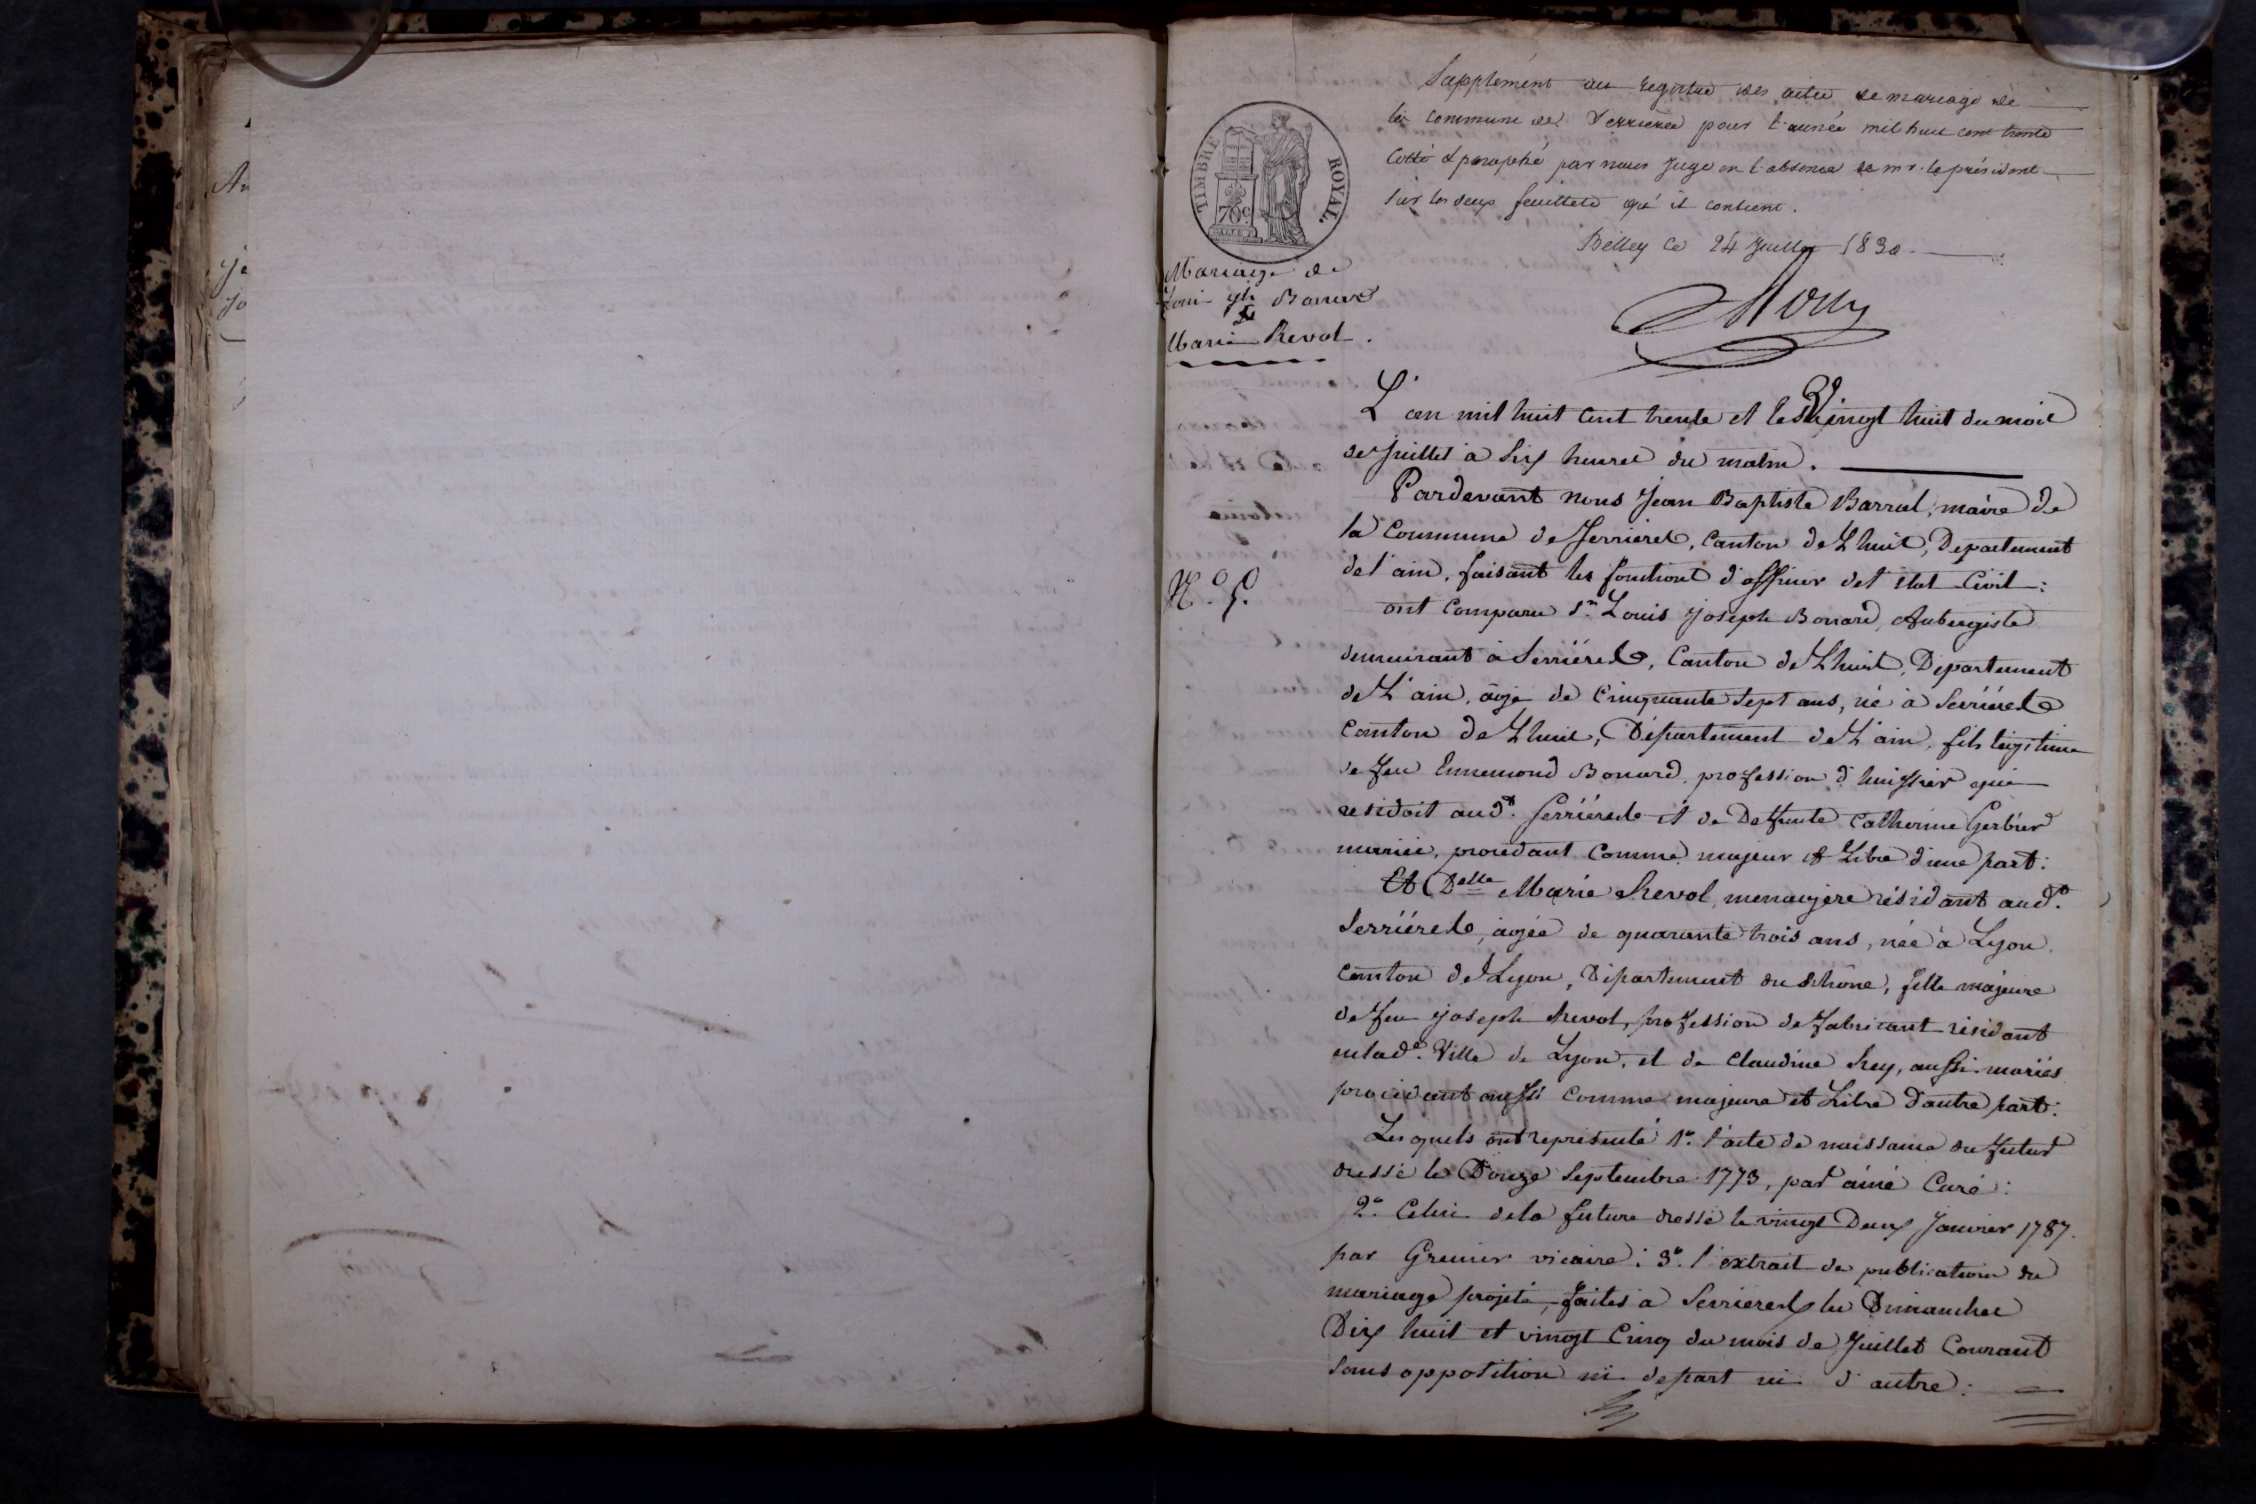 Supplément au registre des actes de mariage de
la commune de Serrieres pour l'année mil huit cent trente
Cotté & paraphé par nous juge en l'absence de mr. le président
sur les deux feuillets qu'il contient.
Belley le 24 Juillet 1830.
TIMBRE ROYAL.
70 c.
Mariage de
Loui jh Bonard
&
Marie Revol.
L'an mil huit cent trente et le vingt huit du mois
de juillet à six heures du matin.
Pardevant nous Jean Baptiste Barral, maire de
la Commune de Serrieres, Canton de Lhuis, Departement
de l'ain, faisant les fonctions d'officier de l'état Civil:
N.o 5.
ont Comparu Sr. Louis joseph Bonard, Aubergiste
demeurant à Serriéres, Canton de Lhuis, Departement
de L'ain, âgé de Cinquante sept ans, né à Serriéres
Canton de Lhuis, Département de L'ain, fils légitime
de feu Ennemond Bonard, profession d'huissier qui
residoit aud.t Serriéres et de Deffunte Catherine Gerbier
mariée, procédant Comme majeur & Libre d'une part:
Et Delle Marie Revol, menagère résidant aud.t
Serriéres, agée de quarante trois ans, née à Lyon
canton de Lyon, Département du Rhône, fille majeure
de feu joseph Revol, profession de fabricant résidant
en lad.e Ville de Lyon, et de Claudine Rey, aussi mariés
procédant aussi Comme majeure et Libre d'autre part:
Lesquels ont représenté 1.o l'acte de naissance du futur
dressé le Douze Septembre 1773, par aimé Curé:
2.o Celui de la future dressé le vingt Deux Janvier 1787.
par Grenier vicaire: 3.o l'extrait de publication du
mariage projeté, faites à Serrieres les Dimanches
Dix huit et vingt Cinq du mois de Juillet Courant
sans opposition ni de part ni d'autre: